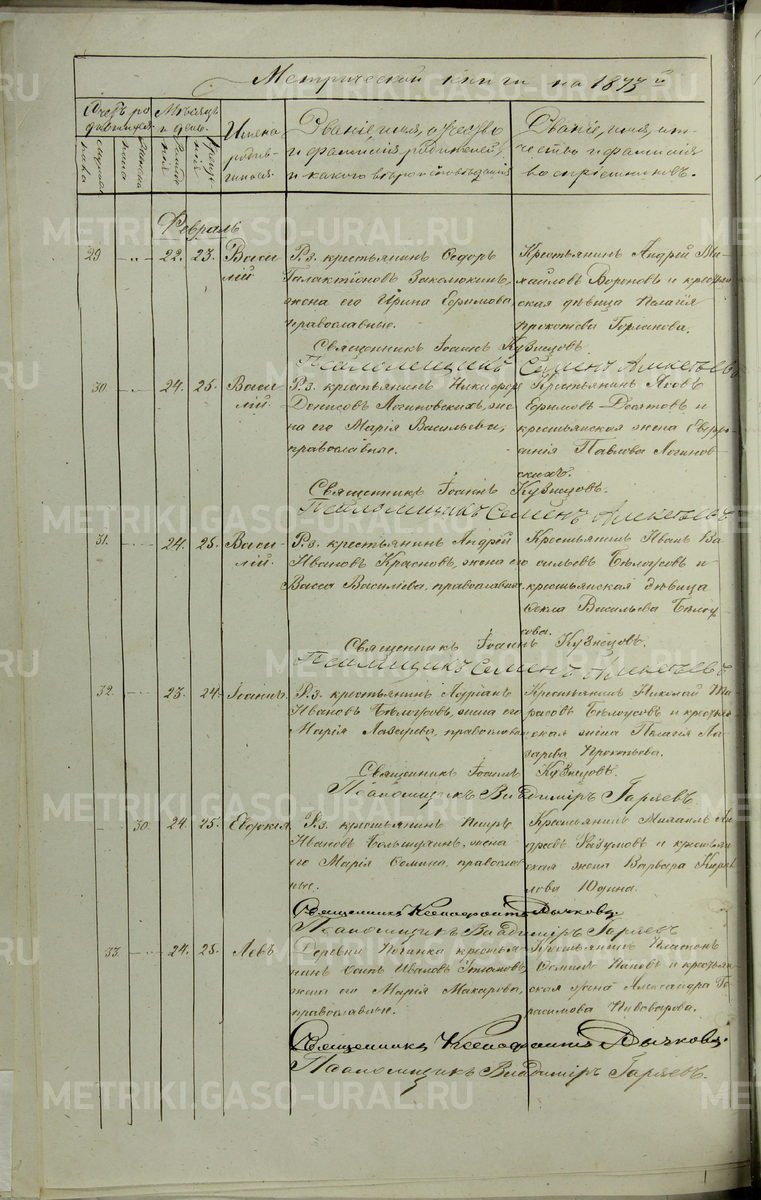 Метрической книги на 1873й
Счетъ родившихся.
Мѣсяцъ и день.
Имена родившихся.
Званіе, имя, отчество
и фамилія родителей,
и какого вѣроисповѣданія
Званіе, имя, отчество
и фамилія
воспріемниковъ.
Февраль
29 22. 23. Василій.
Р.з. крестьянинъ Ѳедоръ
Галактіоновъ
жена его Ирина Ефимова
православные.
Крестьянинъ Андрей Михайловъ
Вороновъ и крестьянская
дѣвица Пелагія
Священникъ Іоаннъ Кузнецовъ
Псаломщикъ Семенъ
30. 24. 25. Василій.
Р.з. крестьянинъ Никифоръ
Денисовъ Логиновскихъ, жена
его Марія Васильева,
православные.
Крестьянинъ Іовъ
Ефимовъ Десятовъ и
крестьянская жена
Павлова Логиновскихъ.
Священникъ Іоаннъ Кузнецовъ.
Псаломщикъ Семенъ
31. 24. 25. Василій.
Р.з. крестьянинъ Андрей
Ивановъ Красновъ, жена его
Васса Василіева, православные
Крестьянинъ Иванъ Васильевъ
Бѣлоусовъ и
крестьянская дѣвица
Ѳекла Васильева Бѣлоусова.
Священникъ Іоаннъ Кузнецовъ.
Псаломщикъ Семенъ
32. 23. 24. Іоаннъ.
Р.з. крестьянинъ Адріанъ
Ивановъ Бѣлоусовъ, жена его
Марія Лазарева, православные
Крестьянинъ Николай Тарасовъ
Бѣлоусовъ и крестьянская
жена Пелагія Лазарева
Священникъ Іоаннъ Кузнецовъ.
Псаломщикъ Владиміръ Гаряевъ
30. 24. 25. Евдокія.
Р.з. крестьянинъ Петръ
Ивановъ жена
его Марія Семина, православные.
Крестьянинъ Михаилъ
и крестьянская
жена Варвара Кирилова
Юдина.
Священникъ Ксенофонтъ Дьячковъ
Псаломщикъ Владиміръ Гаряевъ
33. 24. 25. Левъ
Деревни Починка крестьянинъ
Ивановъ
жена его Марія Макарова,
православные.
Крестьянинъ Платонъ
и крестьянская
жена Александра Герасимова
Пивоварова.
Священникъ Ксенофонтъ Дьячковъ.
Псаломщикъ Владиміръ Гаряевъ.
METRIKI.GASO-URAL.RU